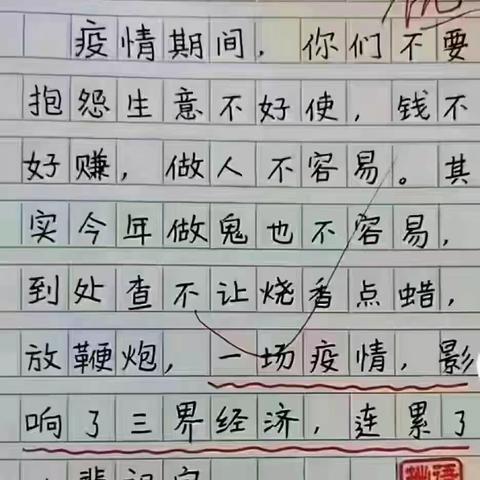 疫情期间，你们不要
抱怨生意不好使，钱不
好赚，做人不容易。其
实今年做鬼也不容易，
到处查不让烧香点蜡，
放鞭炮，一场疫情，影
响了三界经济，连累了